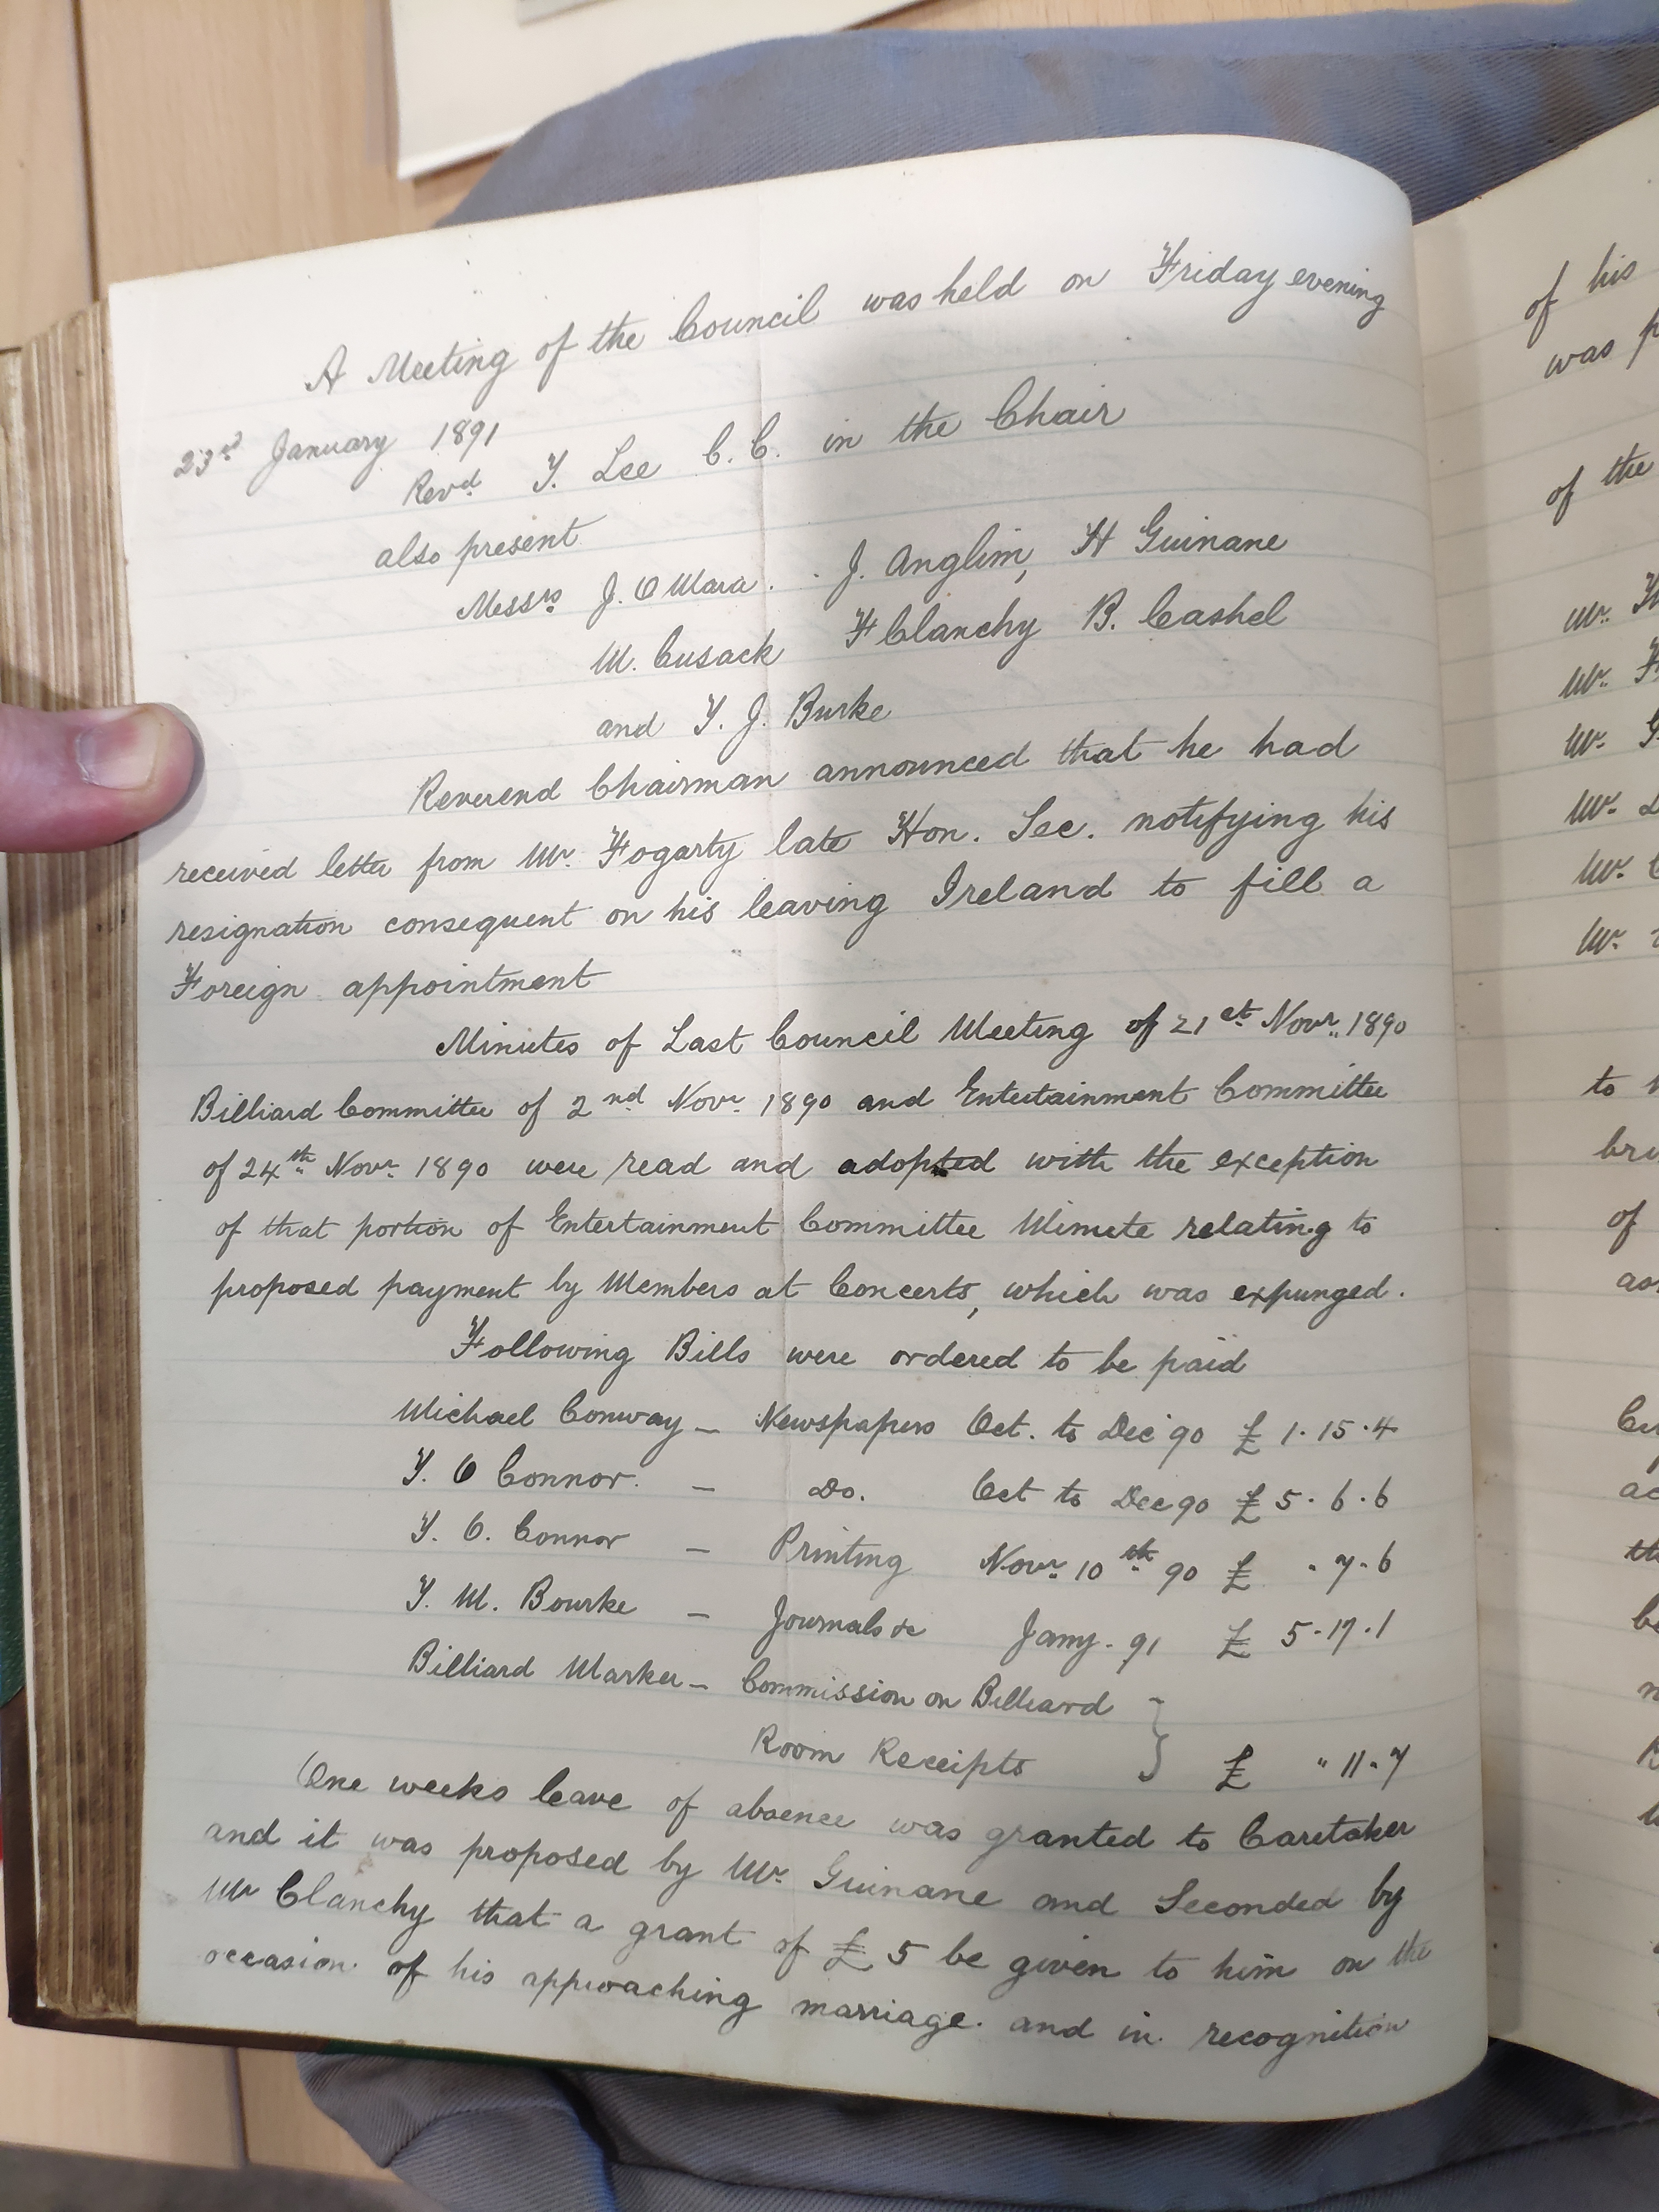 A Meeting of the Council was held on Friday evening
23rd January 1891
Revd. T. Lee C.C. in the Chair
also present
Messrs J. O Mara. J. Anglim, H Guinane
M. Cusack F Clanchy B. Cashel
and T. J. Burke
Reverend Chairman announced that he had
received letter from Mr. Fogarty late Hon. Sec. notifying his
resignation consequent on his leaving Ireland to fill a
Foreign appointment
Minutes of Last Council Meeting of 21st Novr. 1890
Billiard Committee of 2nd Novr. 1890 and Entertainment Committee
of 24th Novr. 1890 were read and adopted with the exception
of that portion of Entertainment Committee Minute relating to
proposed payment by Members at Concerts, which was expunged.
Following Bills were ordered to be paid
Michael Conway – Newspapers Oct. to Dec 90 £ 1.15.4
T. O Connor. – Do. Oct to Dec 90 £ 5.6.6
T. O. Connor – Printing Novr. 10th 90 £ .7.6
T. M. Bourke – Journals &c Jany. 91 £ 5.17.1
Billiard Marker – Commission on Billiard }
Room Receipts £ " 11.7
One weeks leave of absence was granted to Caretaker
and it was proposed by Mr. Guinane and Seconded by
Mr Clanchy that a grant of £ 5 be given to him on the
occasion of his approaching marriage. and in recognition
of his
was
of the
Mr.
Mr.
Mr.
Mr.
Mr.
Mr.
to
of